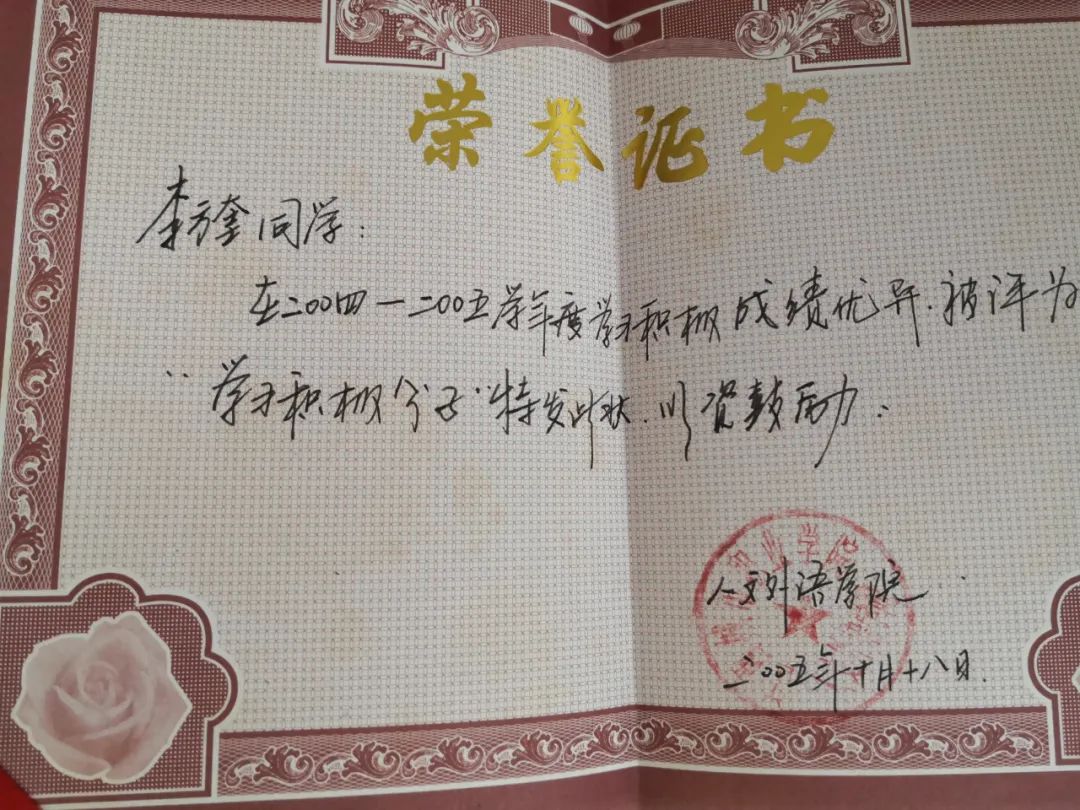 荣誉证书
李方奎同学:
在二00四一二00五学年度学习积极成绩优异.被评为
"学习积极分子"特发此状.以资鼓励.
人文外语学院
二00五年十月十八日.